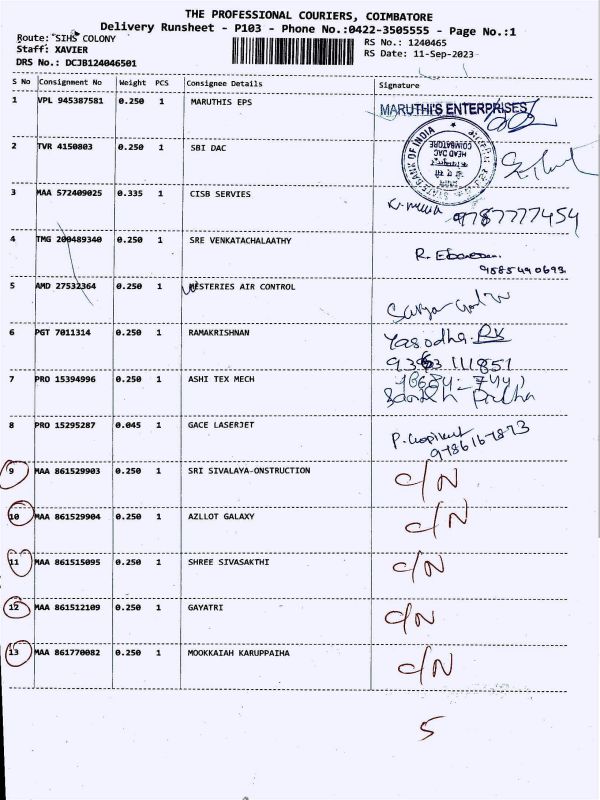 THE PROFESSIONAL COURIERS, COIMBATORE
Delivery Runsheet - P103 - Phone No.:0422-3505555 - Page No.:1
Route: "SIHS COLONY
RS No.: 1240465
Staff: XAVIER
RS Date: 11-Sep-2023
DRS No.: DCJB124046501
S No Consignment No Weight PCS Consignee Details Signature
1 VPL 945387581 0.250 1 MARUTHIS EPS MARUTHI'S ENTERPRISES
2 TVR 4150803 0.250 1 SBI DAC
STATE BANK OF INDIA
HEAD DAC
COIMBATORE
3 MAA 572409025 0.335 1 CISB SERVIES 9787777454
4 TMG 200489340 0.250 1 SRE VENKATACHALAATHY R.
5 AMD 27532364 0.250 1 WESTERIES AIR CONTROL
6 PGT 7011314 0.250 1 RAMAKRISHNAN Yasodha. RK
7 PRO 15394996 0.250 1 ASHI TEX MECH
8 PRO 15295287 0.045 1 GACE LASERJET P.
9786167873
9 MAA 861529903 0.250 1 SRI SIVALAYA-ONSTRUCTION C/N
10 MAA 861529904 0.250 1 AZLLOT GALAXY C/N
11 MAA 861515095 0.250 1 SHREE SIVASAKTHI C/N
12 MAA 861512109 0.250 1 GAYATRI C/N
13 MAA 861770082 0.250 1 MOOKKAIAH KARUPPAIHA C/N
5